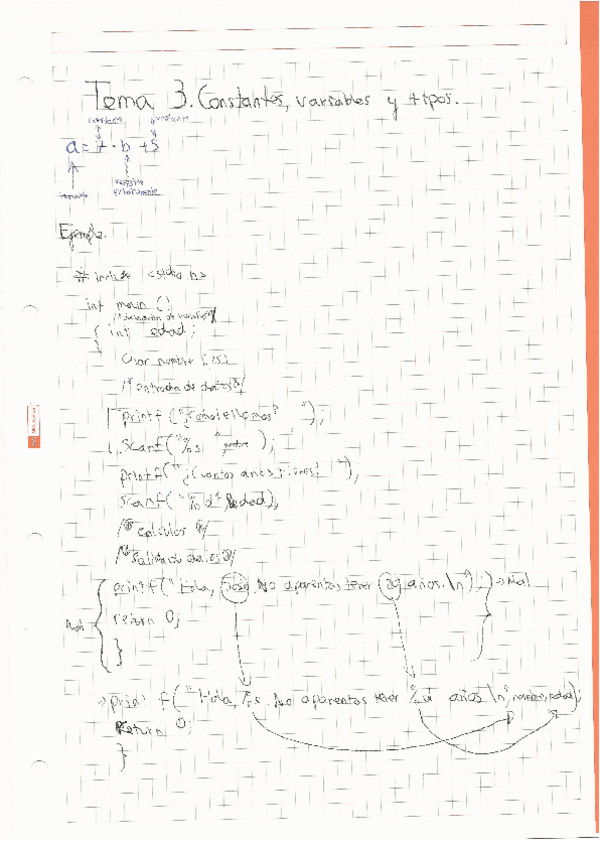 Tema 3. Constantes, variables y tipos.
constante
a = 7 · b + 5
variable
Ejemplo.
# include <stdio.h>
int main ()
{ int edad;
char nombre [15]
/* entrada de datos */
printf ("¿Cómo te llamas? ");
scanf("%s" nombre );
printf(" ¿Cuantos años tienes? ");
scanf( "%d" &edad);
/* Calculos */
/* Salida de datos */
printf(" Hola, José No aparentas tener 20 años. \n"); → Mal
return 0;
}
→ printf(" Hola, %s. No aparentas tener %d años \n", nombre, edad);
Return 0;
}